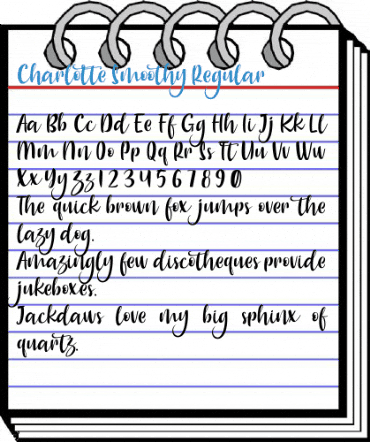 Charlotte Smoothy Regular
Aa Bb Cc Dd Ee Ff Gg Hh Ii Jj Kk Ll
Mm Nn Oo Pp Qq Rr Ss Tt Uu Vv Ww
Xx Yy Zz 1 2 3 4 5 6 7 8 9 0
The quick brown fox jumps over the
lazy dog.
Amazingly few discotheques provide
jukeboxes.
Jackdaws love my big sphinx of
quartz.